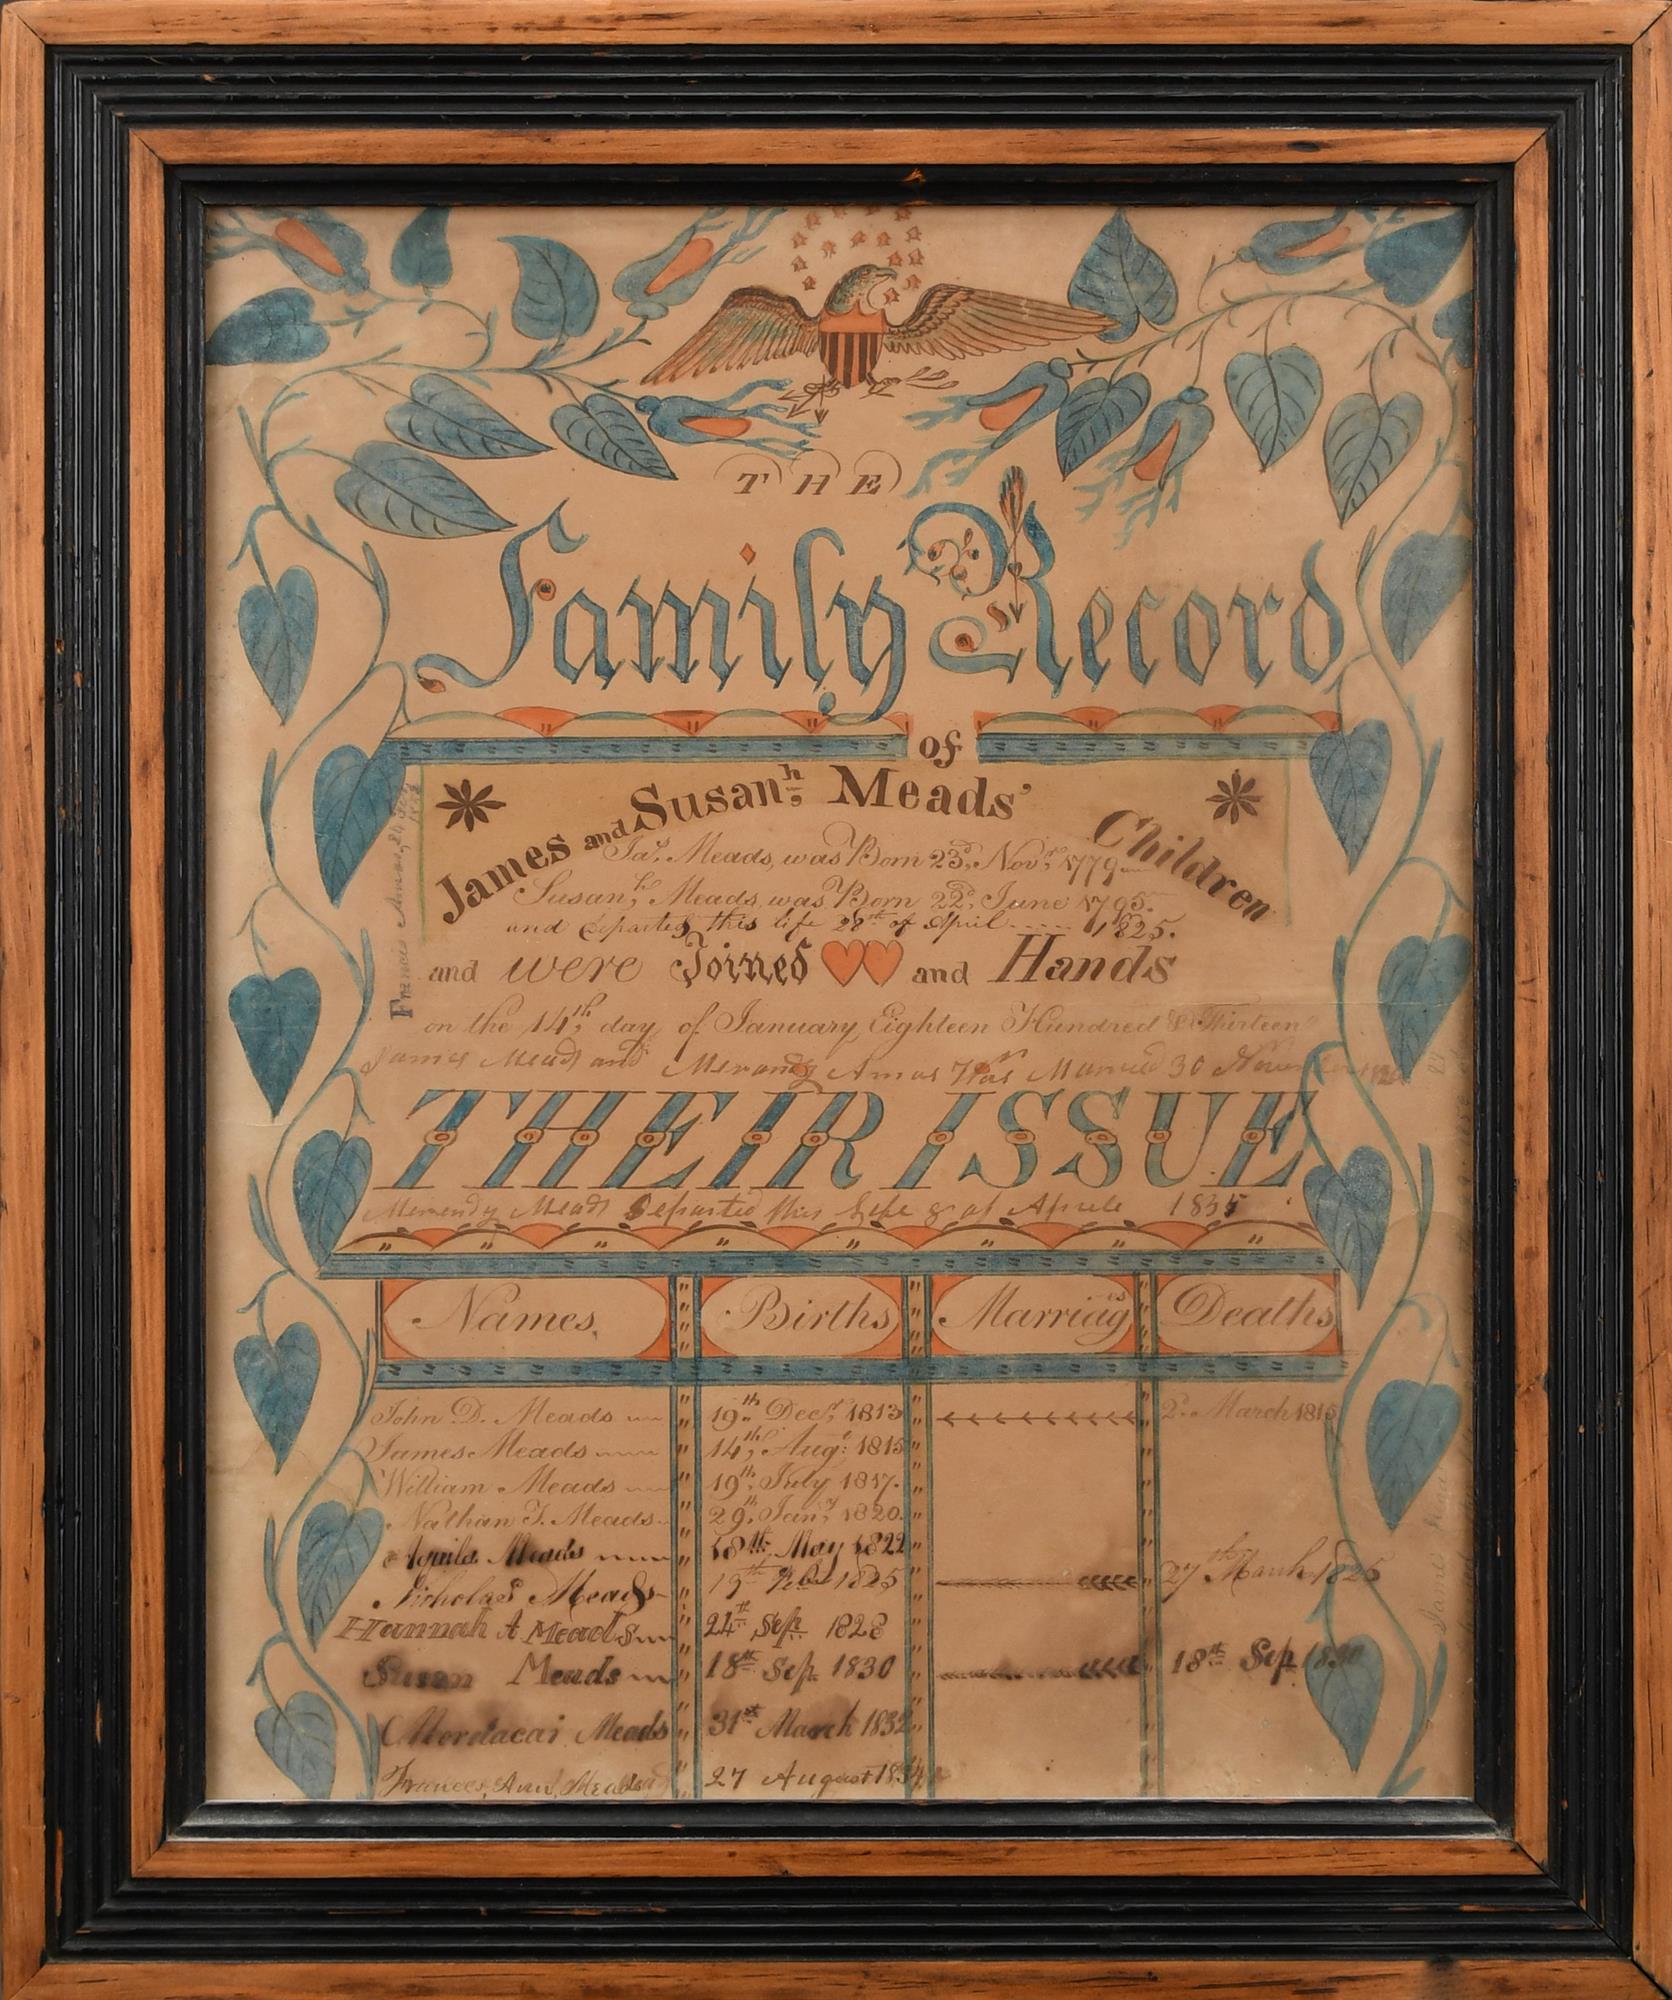 THE
Family Record
of
James and Susanh, Meads' Children
Jas. Meads, was Born 23d, Novr, 1779
Susanh, Meads, was Born 22d, June 1795.
and departed this life 28th of April ..... 1825.
and were Joined and Hands
on the 14th, day of January, Eighteen Hundred & Thirteen
James Meads and Merandy Amos Was Married 30
THEIR ISSUE
Merendy Meads Departed this life 8 of Aprile 1835
Names, Births Marriages Deaths
John D. Meads 19th Decr, 1813 2d March 1815
James Meads 14th, Augt: 1815
William Meads 19th, July 1817.
Nathan T. Meads 29th, Jany 1820.
Aquila Meads 18th May 1822
Nicholas Meads 19th Feb 1825 27th March 1825
Hannah A Meads 24th Sep 1828
Susan Meads 18th Sep 1830 18th Sep 1830
Mordacai Meads 31st March 1832
Frances, Ann, Meads 27 August 1834
Francis Amos,